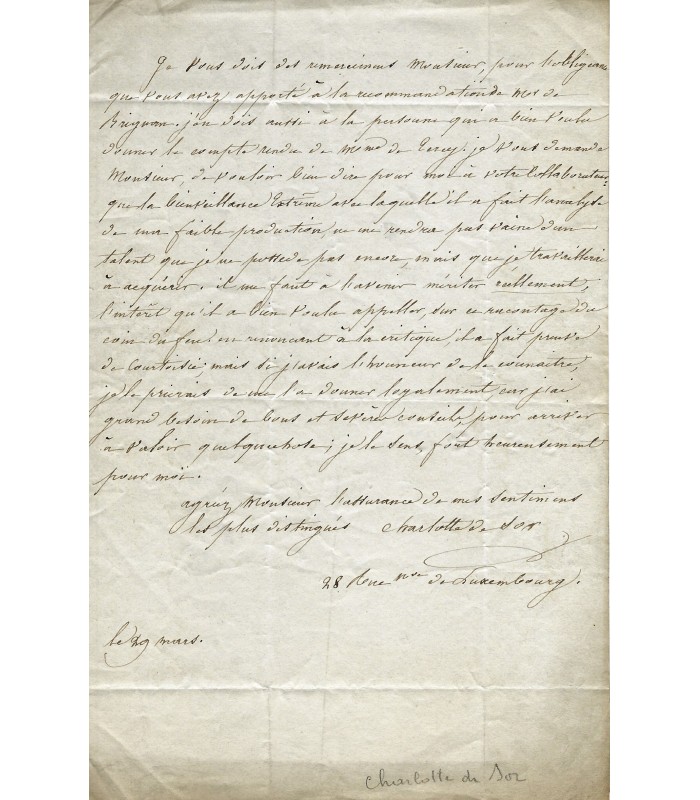 Je vous dois des remercimens Monsieur, pour l'obligeance
que vous avez apporté à la recommandation de Mr de
j'en dois aussi à la personne qui a bien voulu
donner le compte rendu de Mme de je vous demande
Monsieur, de vouloir bien dire pour moi a votre Collaborateur
que la bienveillance Extrême avec laquelle il a fait l'analyse
de ma faible production ne me rendra pas vaine d'un
talent que je ne possede pas encore, mais que je travaillerai
à acquérir. il me faut à l'avenir mériter réellement,
l'intérêt qu'il a bien voulu appeller, sur ce racontage du
coin du feu! en renoncant à la critique, il a fait preuve
de Courtoisie; mais si j'avais l'honneur de le connaitre,
je le prierais de me la donner loyalement, car j'ai
grand besoin de bons et sévères conseils, pour arriver
à valoir quelquechose; je le sens, fort heureusement
pour moi.
agréez Monsieur l'assurance de mes sentimens
les plus distingués Charlotte de Sor
28 Rue nve de Luxembourg.
le 29 mars.
Charlotte de Sor